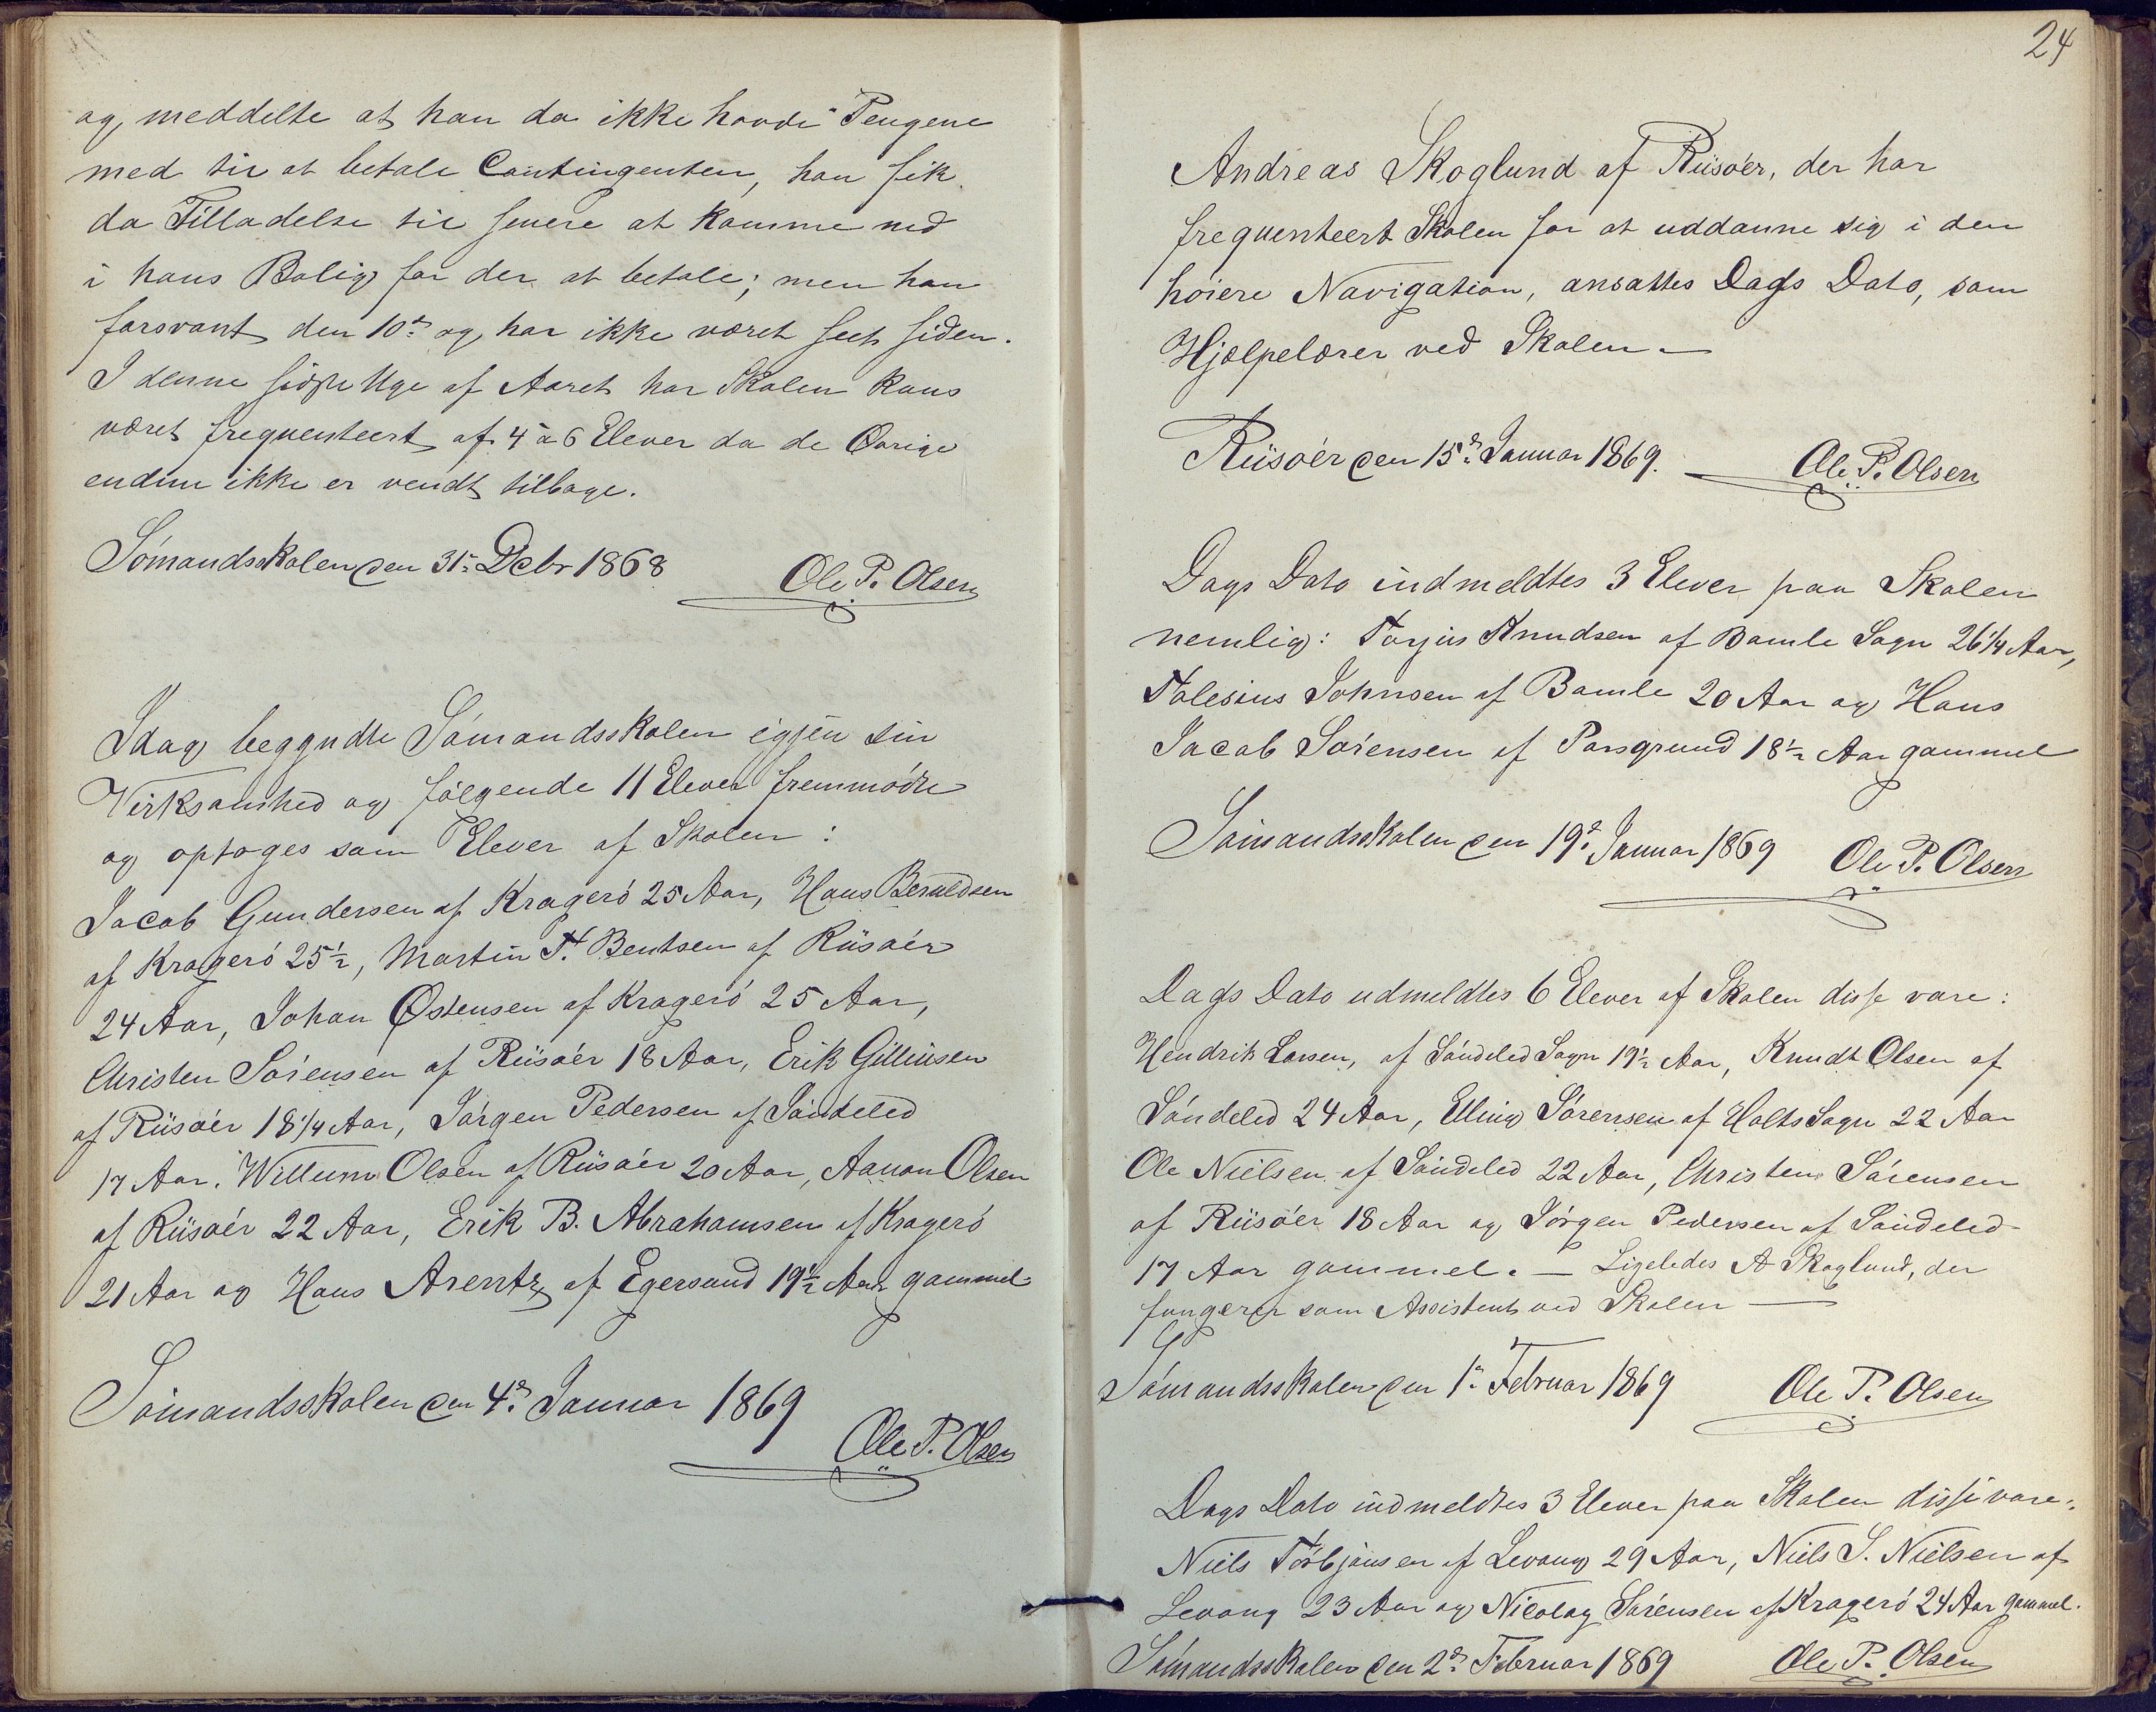 og meddelte at han da ikke havde Pengene
med til at betale Contingenten, han fik
da Tilladelse til senere at komme ned
i hans Bolig for der at betale; men han
forsvant den 10de og har ikke været seet siden.
I denne sidste Uge af Aaret har Skolen kuns
været frequenteert af 4 à 6 Elever da de Øvrige
endnu ikke er vendt tilbage.
Sömandsskolen den 31te Decbr 1868
Ole P. Olsen
Idag begyndte Sömandsskolen igjen sin
Virksomhed og følgende 11 Elever fremmødte
og optoges som Elever af Skolen:
Jacob Gundersen af Kragerö 25 Aar, Hans Beruldsen
af Kragerö 25½, Martin T. Bentsen af Riisöer
24 Aar, Johan Østensen af Kragerö 25 Aar,
Christen Sörensen af Riisöer 18 Aar, Erik Gilliusen
af Riisöer 18¼ Aar, Jörgen Pedersen af Söndeled
17 Aar. Willum Olsen af Riisöer 20 Aar, Aanon Olsen
af Riisöer 22 Aar, Erik B. Abrahamsen af Kragerö
21 Aar og Hans Arentz af Egersund 19½ Aar gammel
Sömandsskolen den 4de Januar 1869
Ole P. Olsen
24
Andreas Skoglund af Riisöer, der har
frequenteert Skolen for at uddanne sig i den
höiere Navigation, ansattes Dags Dato, som
Hjælpelærer ved Skolen —
Riisöer den 15de Januar 1869.
Ole P. Olsen
Dags Dato indmeldtes 3 Elever paa Skolen
nemlig: Torjus Knudsen af Bamle Sogn 26¼ Aar,
Tolesius Johnsen af Bamle 20 Aar og Hans
Jacob Sörensen af Porsgrund 18½ Aar gammel
Sömandsskolen den 19de Januar 1869
Ole P. Olsen
Dags Dato udmeldtes 6 Elever af Skolen disse vare:
Hendrik Larsen, af Söndeled Sogn 19½ Aar, Knudt Olsen af
Söndeled 24 Aar, Elling Sörensen af Holts Sogn 22 Aar
Ole Nielsen af Söndeled 22 Aar, Christen Sörensen
af Riisöer 18 Aar og Jörgen Pedersen af Söndeled
17 Aar gammel. — Ligeledes A Skoglund, der
fungerer som Assistent ved Skolen —
Sömandsskolen den 1te Februar 1869
Ole P. Olsen
Dags Dato indmeldtes 3 Elever paa Skolen disse vare:
Niels Törbjönsen af Levang 29 Aar, Niels S. Nielsen af
Levang 23 Aar og Nicolay Sörensen af Kragerö 24 Aar gammel.
Sömandsskolen den 2den Februar 1869
Ole P. Olsen